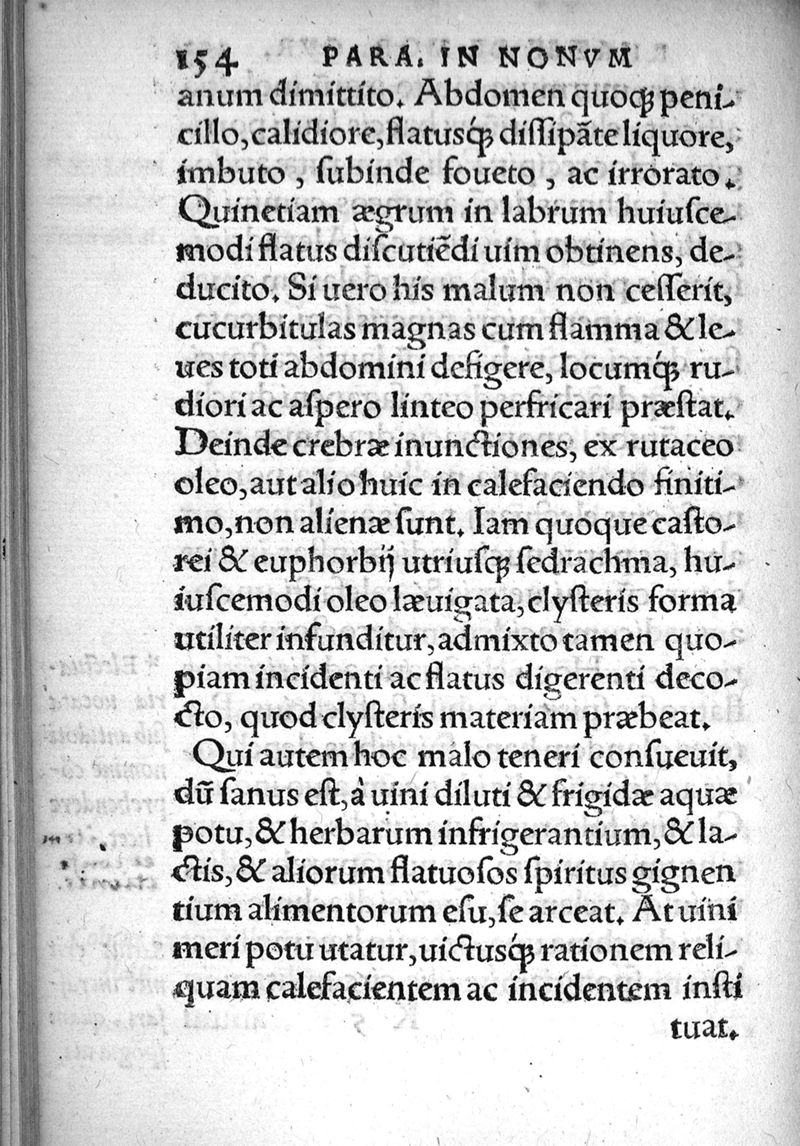 154 PARA. IN NONVM
anum dimittito. Abdomen quoqꝫ peni-
cillo, calidiore, flatusq́ꝫ diſſipãte liquore,
imbuto , ſubinde foueto , ac irrorato.
Quinetiam ægrum in labrum huiuſce-
modi flatus diſcutiẽdi uim obtinens, de-
ducito. Si uero his malum non ceſſerit,
cucurbitulas magnas cum flamma & le-
ues toti abdomini defigere, locumq́ꝫ ru-
diori ac aſpero linteo perfricari præſtat.
Deinde crebræ inunctiones, ex rutaceo
oleo, aut alio huic in calefaciendo finiti-
mo, non alienæ ſunt. Iam quoque caſto-
rei & euphorbij utriuſqꝫ ſedrachma, hu-
iuſcemodi oleo læuigata, clyſteris forma
utiliter infunditur, admixto tamen quo-
piam incidenti ac flatus digerenti deco-
cto, quod clyſteris materiam præbeat.
Qui autem hoc malo teneri conſueuit,
dũ ſanus eſt, à uini diluti & frigidæ aquæ
potu, & herbarum infrigerantium, & la-
ctis, & aliorum flatuoſos ſpiritus gignen
tium alimentorum eſu, ſe arceat. At uini
meri potu utatur, uictusq́ꝫ rationem reli-
quam calefacientem ac incidentem inſti
tuat.